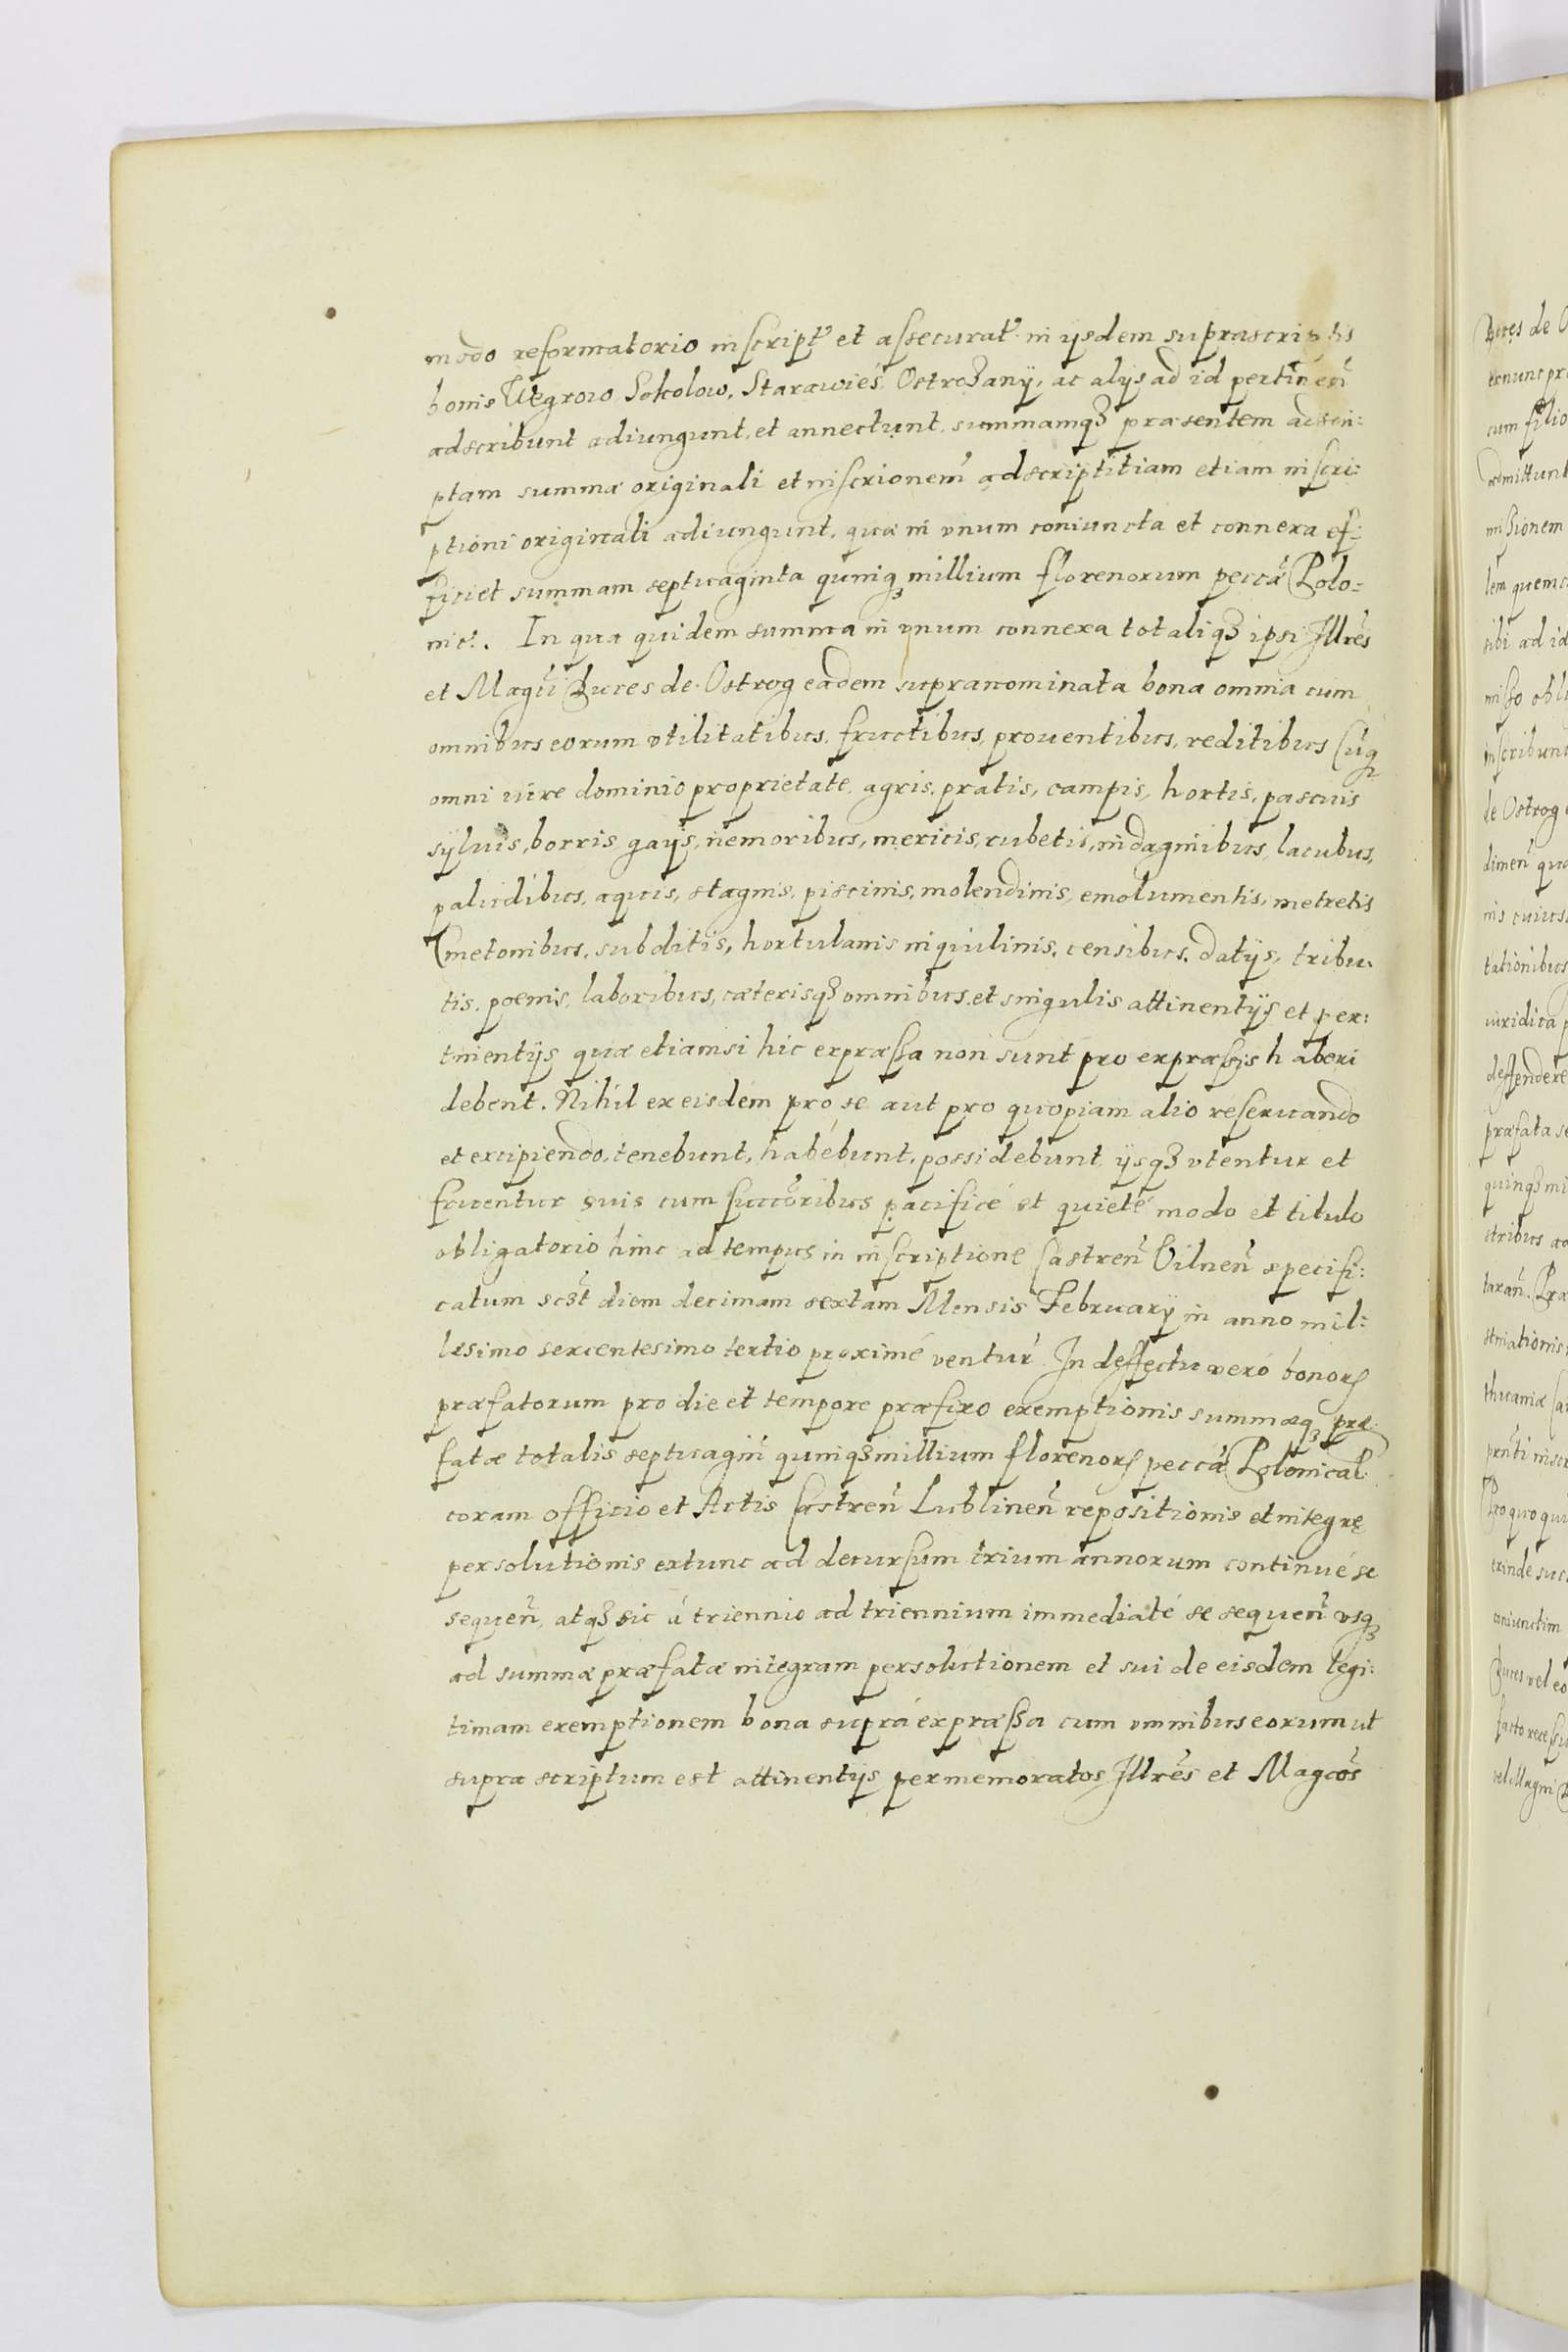 modo reformatorio inscript et assecurat in ijsdem suprascriptis
bonis Węgrow Sokolow, Starawiés Ostrożanÿ, ac alijs ad id pertinen
adscribunt adiungunt, et annectunt, summamqʒ præsentem adscri:
ptam summæ originali et inscrionem adscriptitiam etiam inscri:
ptioni originali adiungunt, quæ in vnum coniuncta et connexa ef:
ficiet summam septuaginta quinqʒ millium florenorum pecca Polo=
nic. In qua quidem summa in vnum connexa totaliqʒ ipsi Illres
et Magci Duces de Ostrog eadem supranominata bona omnia cum
omnibus eorum vtilitatibus, fructibus, prouentibus, reditibus Cuq
omni iure dominio proprietate, agris, pratis, campis, hortis, pascuis
sÿluis, borris gaÿs, nemoribus, mericis, rubetis, indaginibus, lacubus,
paludibus, aquis, stagnis, piscinis, molendinis, emolumentis, metretis
Cmetonibus, subditis, hortulanis inquilinis, censibus, datijs, tribu:
tis, poenis, laboribus, cæterisqʒ omnibus et singulis attinentijs et per:
tinentijs quæ etiamsi hic expræssa non sunt pro expræssis haberi
debent. Nihil ex eisdem pro se aut pro quopiam alio reseruando
et excipiendo, tenebunt, habebunt, possidebunt, ijsqʒ vtentur et
fruentur suis cum succoribus pacificé et quieté modo et titulo
obligatorio hinc ad tempus in inscriptione Castren Vilnen specifi:
catum sczt diem decimam sextam Mensis Februarÿ in anno mil:
lesimo sexcentesimo tertio proximé ventur. In deffectu veró bonorʒ
præfatorum pro die et tempore præfixo exemptionis summæqʒ præ:
fatæ totalis septuagin quinqʒ millium florenorʒ pecca Polonical
coram officio et Actis Castren Lublinen repositionis et integrę
persolutionis extunc ad decursum trium annorum continué se
sequen, atqʒ sic á triennio ad triennium immediaté se sequen vsqʒ
ad summæ præfatæ integram persolutionem et sui de eisdem legi:
timam exemptionem bona suprá expræssa cum omnibus eorum ut
supra scriptum est attinentijs per memoratos Illres et Magcos